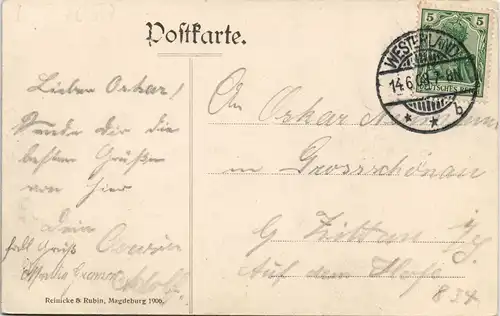 Postkarte.
5
DEUTSCHES REICH
WESTERLAND
14.6.08.7-8N
b
Lieber Oskar!
Sende dir die
besten Grüße
von hier
Dein
Adolf
An Oskar
in Grossschönau
Zittau i/S
Auf dem Hofe
834
Reinicke & Rubin, Magdeburg 1906.